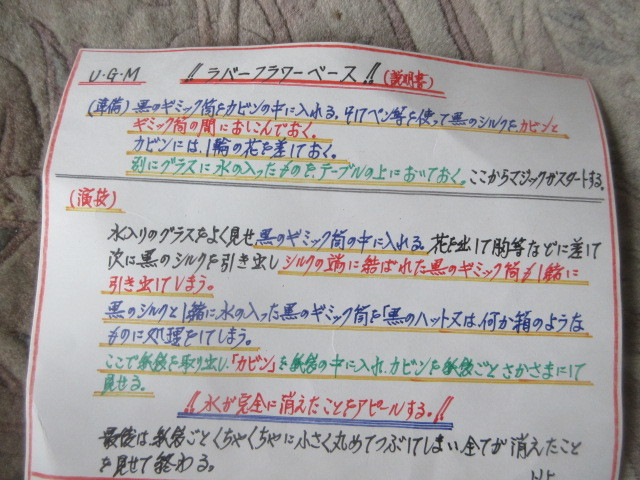 U・G・M !! ラバーフラワーベース !! (説明書)
(準備) 黒のギミック筒をカビンの中に入れる。そしてペン等を使って黒のシルクをカビンと
ギミック筒の間におしこんでおく。
カビンには、1輪の花を差ておく。
別にグラスに水の入ったものを、テーブルの上においておく。ここからマジックがスタートする。
(演技)
水入りのグラスをよく見せ黒のギミック筒の中に入れる。花を出して胸等などに差て
次に黒のシルクを引き出しシルクの端に結ばれた黒のギミック筒も1緒に
引き出してしまう。
黒のシルクと1緒に水の入った黒のギミック筒を「黒のハット又は、何か箱のような
ものに処理をしてしまう。
ここで紙袋を取り出し、「カビン」を紙袋の中に入れ、カビンを紙袋ごとさかさまにして
見せる。
!! 水が完全に消えたことをアピールする。!!
最後は、紙袋ごとくちゃくちゃに小さく丸めてつぶしてしまい、全てが消えたこと
を見せて終わる。